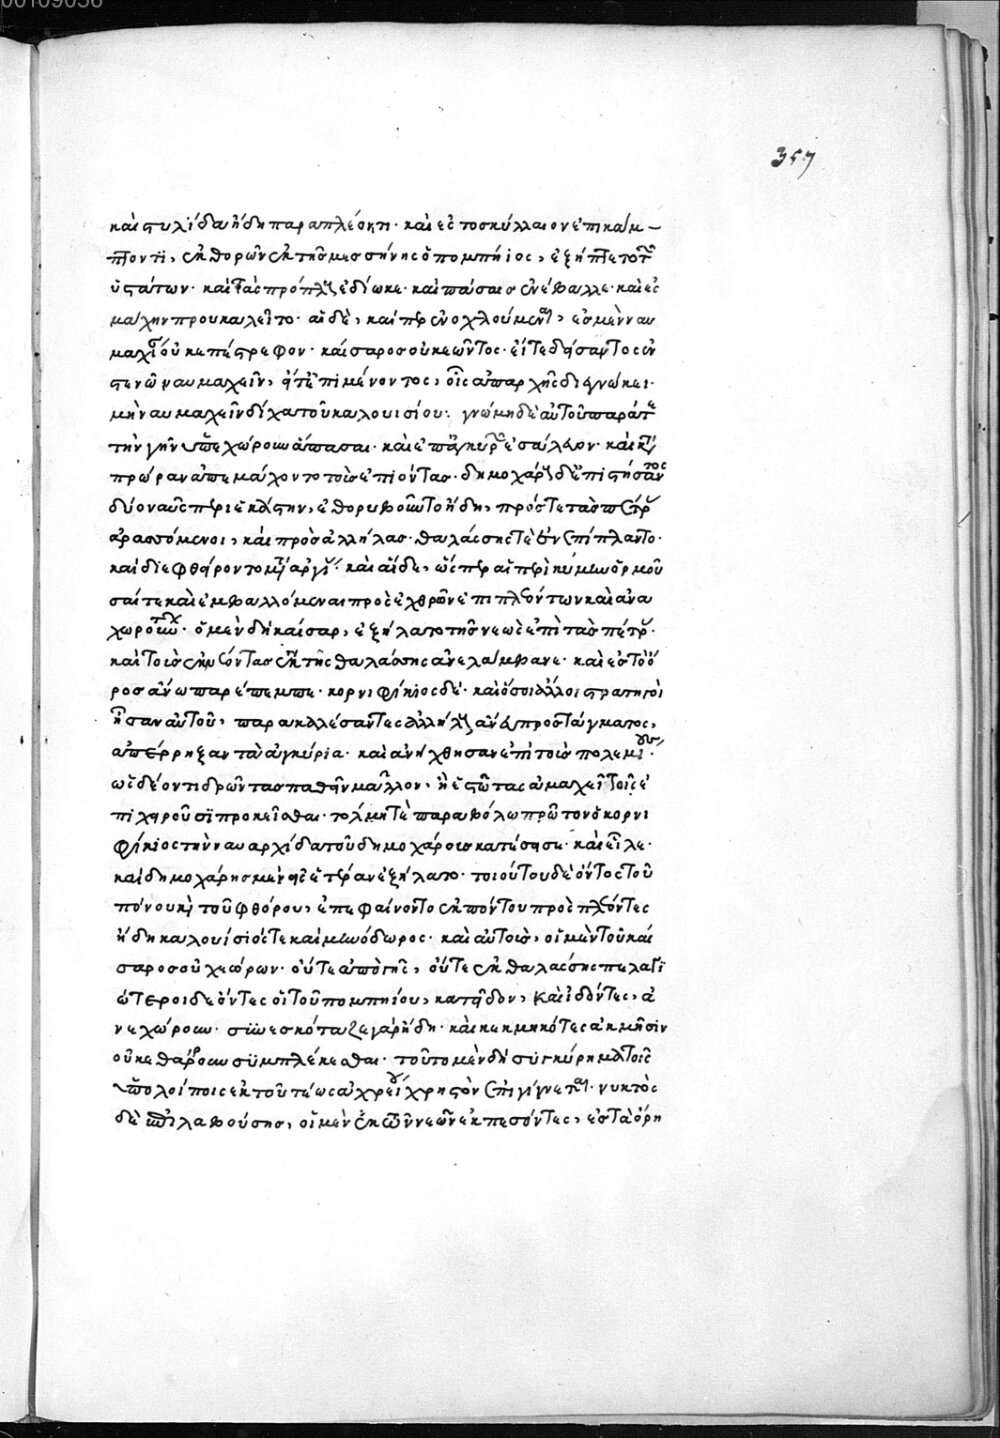 00109056
357
καὶ στυλίδα ἤδη παραπλέοντι· καὶ ἐς τὸ σκύλλαιον ἐπικάμ-
πτοντι, ἐκθορὼν ἐκ τῆς μεσσήνης ὁ πομπήιος, ἐξήπτετο τῶν
ὑστάτων· καὶ τὰς πρόπλους ἐδίωκε· καὶ πάσαις ἐνέβαλλε· καὶ ἐς
μάχην προυκαλεῖτο· αἱ δὲ, καίπερ ἐνοχλούμεναι, ἐς μὲν ναυ
μαχίαν οὐκ ἐπέστρεφον· καίσαρος οὐκ ἐῶντος· εἴτε δείσαντος ἐν
στενῶ ναυμαχεῖν, εἴτ' ἐπιμένοντος, οἷς ἀπ' ἀρχῆς διεγνώκει·
μὴ ναυμαχεῖν δίχα τοῦ καλουισίου· γνώμη δὲ αὐτοῦ παρά τε
τὴν γῆν ὑπεχώρουν ἅπασαι· καὶ ἐπ' ἀγκυρῶν ἐσάλευον· καὶ κατὰ
πρώραν ἀπεμάχοντο τοῖς ἐπιόντας· δημοχάρους δ' ἐπιστήσαντος
δύο ναῦς περὶ ἑκάστην, ἐθορυβοῦντο ἤδη, πρός τε τὰς πέτρας
ἀρασσόμεναι, καὶ πρὸς ἀλλήλας· θαλάσσης τε ἐνεπίπλαντο·
καὶ διεφθείροντο μετ' ἀργίας καὶ αἵδε, ὥσπερ αἱ περὶ κύμην ὁρμοῦ
σαί τε καὶ ἐμβαλλόμεναι πρὸς ἐχθρῶν ἐπιπλεόντων καὶ ἀνα
χωρούντων· ὁ μὲν δὴ καίσαρ, ἐξήλατο τῆς νεὼς ἐπὶ τὰς πέτρας·
καὶ τοὺς ἐκνέοντας ἐκ τῆς θαλάσσης ἀνελάμβανε· καὶ ἐς τὸ ὄ
ρος ἄνω παρέπεμπε· κορνιφίκιος δὲ· καὶ ὅσοι ἄλλοι στρατηγοὶ
ἦσαν αὐτοῦ, παρακαλέσαντες ἀλλήλους ἄνευ προστάγματος,
ἀπέρρηξαν τὰ ἀγκύρια· καὶ ἀνήχθησαν ἐπὶ τοὺς πολεμίους·
ὡς δέον τι δρῶντας παθεῖν μᾶλλον· ἢ ἑστῶτας ἀμαχεὶ τοῖς ἐ
πιχειροῦσι προκεῖσθαι· τόλμη τε παραβόλω πρῶτον ὁ κορνι
φίκιος τὴν ναυαρχίδα τοῦ δημοχάρους κατέσεισε· καὶ εἷλε·
καὶ δημοχάρης μὲν ἐς ἑτέραν ἐξήλατο· τοιούτου δὲ ὄντος τοῦ
πόνου καὶ τοῦ φθόρου, ἐπεφαίνοντο ἐκ πόντου προσπλέοντες
ἤδη καλουίσιός τε καὶ μηνόδωρος· καὶ αὐτοὺς, οἱ μὲν τοῦ καί
σαρος οὐχ ἑώρων· οὔτε ἀπὸ γῆς, οὔτε ἐκ θαλάσσης πελαγι
ώτεροι δὲ ὄντες οἱ τοῦ πομπηίου, κατεῖδον, καὶ ἰδόντες, ἀ
νεχώρουν· συνεσκόταζε γὰρ ἤδη· καὶ κεκμηκότες ἀκμῆσιν
οὐκ ἐθάρρουν συμπλέκεσθαι· τοῦτο μὲν δὴ συγκύρημα τοῖς
ὑπολοίποις ἐκ τοῦ τέως ἀχρείου χρηστὸν ἐπιγίγνεται· νυκτὸς
δὲ ἐπιλαβούσης, οἱ μὲν ἐκ τῶν νεῶν ἐκπεσόντες, ἐς τὰ ὄρη